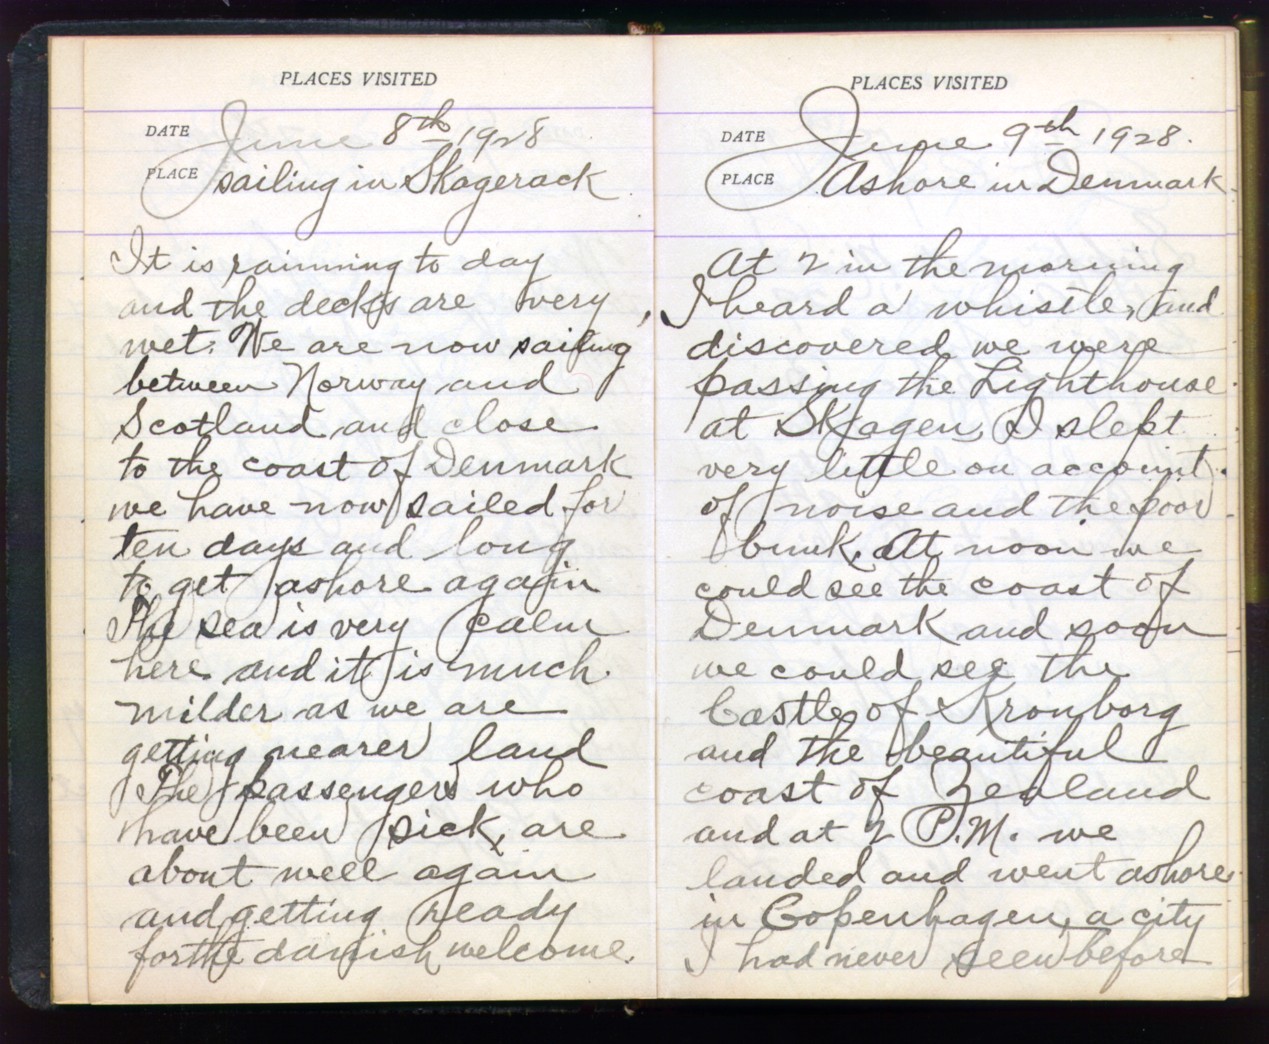 PLACES VISITED
DATE June 8th 1928
PLACE sailing in Skagerack
It is rainning to day
and the decks are very
wet. We are now sailing
between Norway and
Scotland and close
to the coast of Denmark
we have now sailed for
ten days and long
to get ashore again
The sea is very calm
here and it is much
milder as we are
getting nearer land
The passengers who
have been sick, are
about well again
and getting ready
for the danish welcome.
PLACES VISITED
DATE June 9th 1928.
PLACE Ashore in Denmark
At 2 in the morning
I heard a whistle, and
discovered we were
passing the Lighthouse
at Skagen, I slept
very little on account
of noise and the poor
bunk. At noon we
could see the coast of
Denmark and soon
we could see the
Castle of Kronborg
and the beautiful
coast of Zealand
and at 2 P.M. we
landed and went ashore
in Copenhagen, a city
I had never seen before